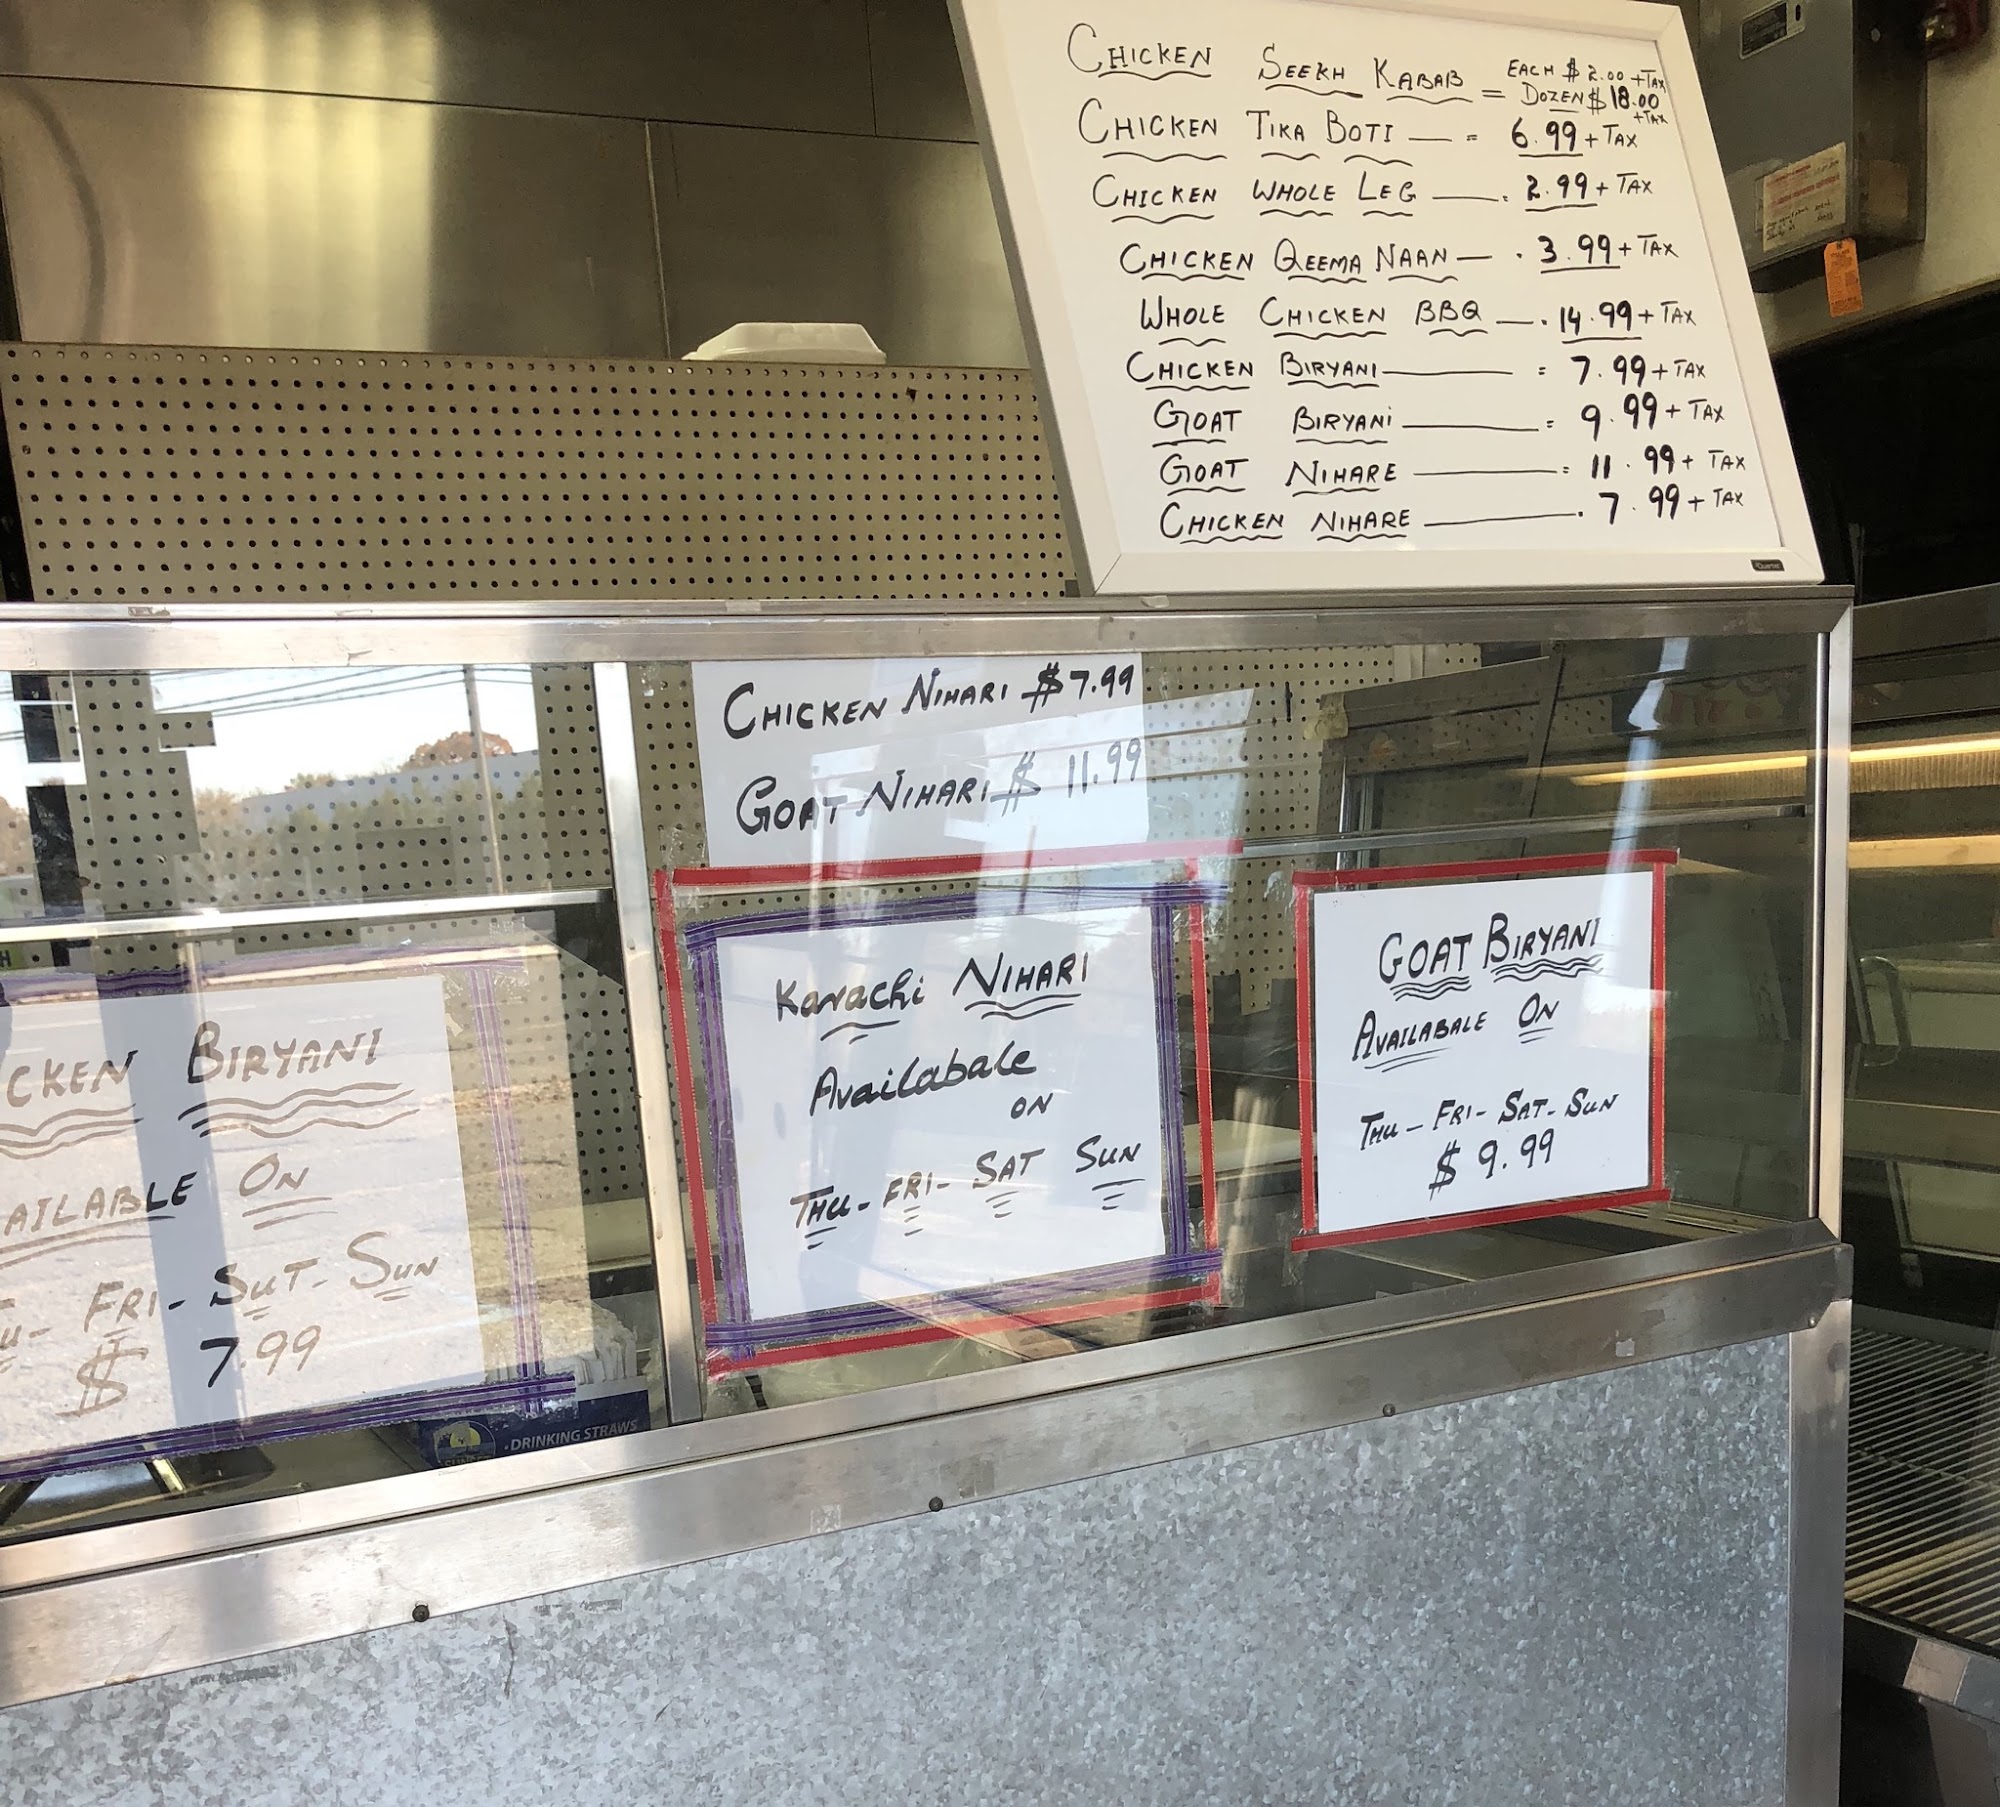 CHICKEN SEEKH KABAB = EACH $ 2.00 + TAX
DOZEN $ 18.00
+ TAX
CHICKEN TIKA BOTI — = 6.99 + TAX
CHICKEN WHOLE LEG — . 2.99 + TAX
CHICKEN QEEMA NAAN — . 3.99 + TAX
WHOLE CHICKEN BBQ — . 14.99 + TAX
CHICKEN BIRYANI — = 7.99 + TAX
GOAT BIRYANI — = 9.99 + TAX
GOAT NIHARE — = 11.99 + TAX
CHICKEN NIHARE — . 7.99 + TAX
Quartet
CHICKEN NIHARI $ 7.99
GOAT NIHARI $ 11.99
CKEN BIRYANI
AILABLE ON
U - FRI - SUT - SUN
$ 7.99
Karachi NIHARI
Availabale
ON
THU - FRI - SAT SUN
GOAT BIRYANI
AVAILABALE ON
THU - FRI - SAT - SUN
$ 9.99
DRINKING STRAWS